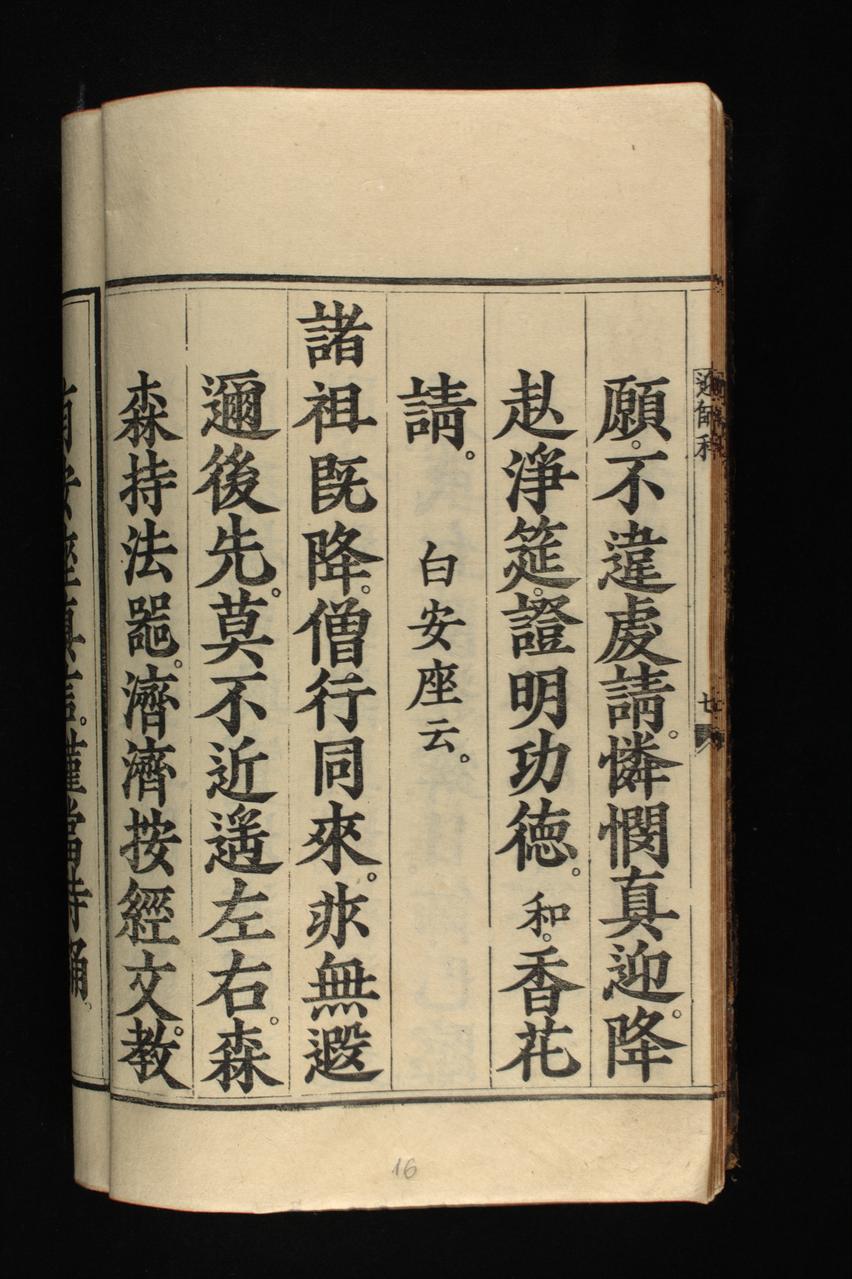 願。不違處請。憐憫真迎。降
赴淨筵。證明功德。和。香花
請。 白安座云。
諸祖既降。僧行同來。非無遐
邇後先。莫不近遥左右。森
森持法噐。濟濟按經文。教
有安座真言。謹當持誦。
16